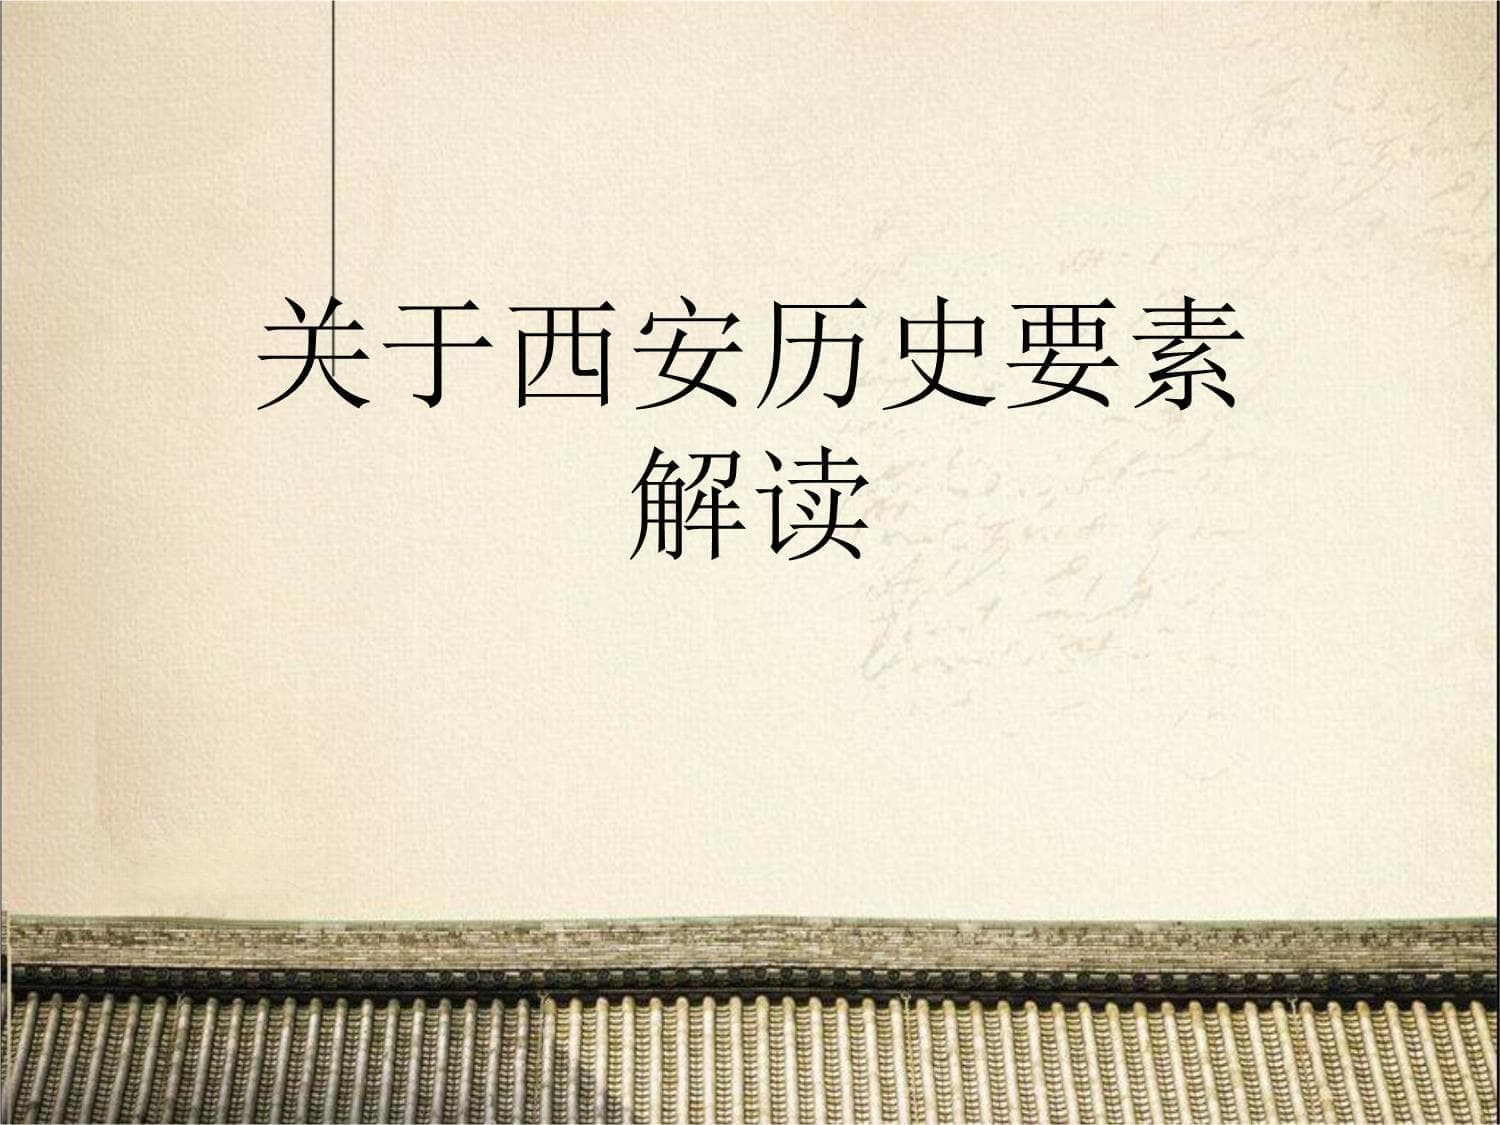 关于西安历史要素
解读